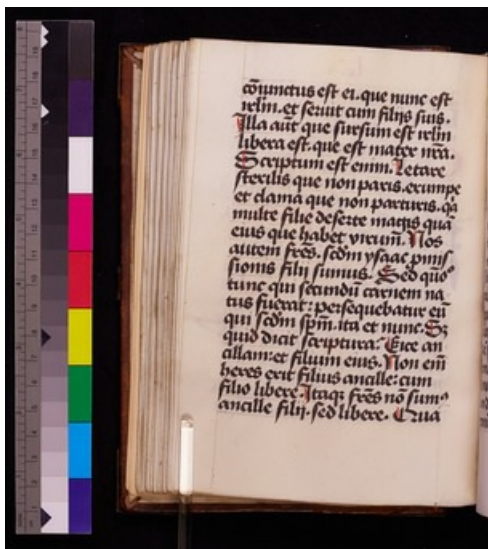 cōiunctus est ei. que nunc est
ierlm̄. et seruit cum filijs suis.
Illa aūt que sursum est ierlm̄
libera est. que est mater nr̄a.
Scriptum est enim. Letare
sterilis que non paris. erumpe
et clama que non parturis. qā
multe filie deserte magis quā
eius que habet virum. Nos
autem fr̄es. scd̄m ysaac pmis
sionis filij sumus. Sed quōº
tunc qui secundū carnem na
tus fuerat: persequebatur eū
qui scd̄m spm̄. ita et nunc. Sꝫ
quid dicit scriptura: Eice an
cillam: et filium eius. Non em̄
heres erit filius ancille: cum
filio libere. Itaqꝫ fr̄es nō sumꝰ
ancille filij. sed libere. Qua